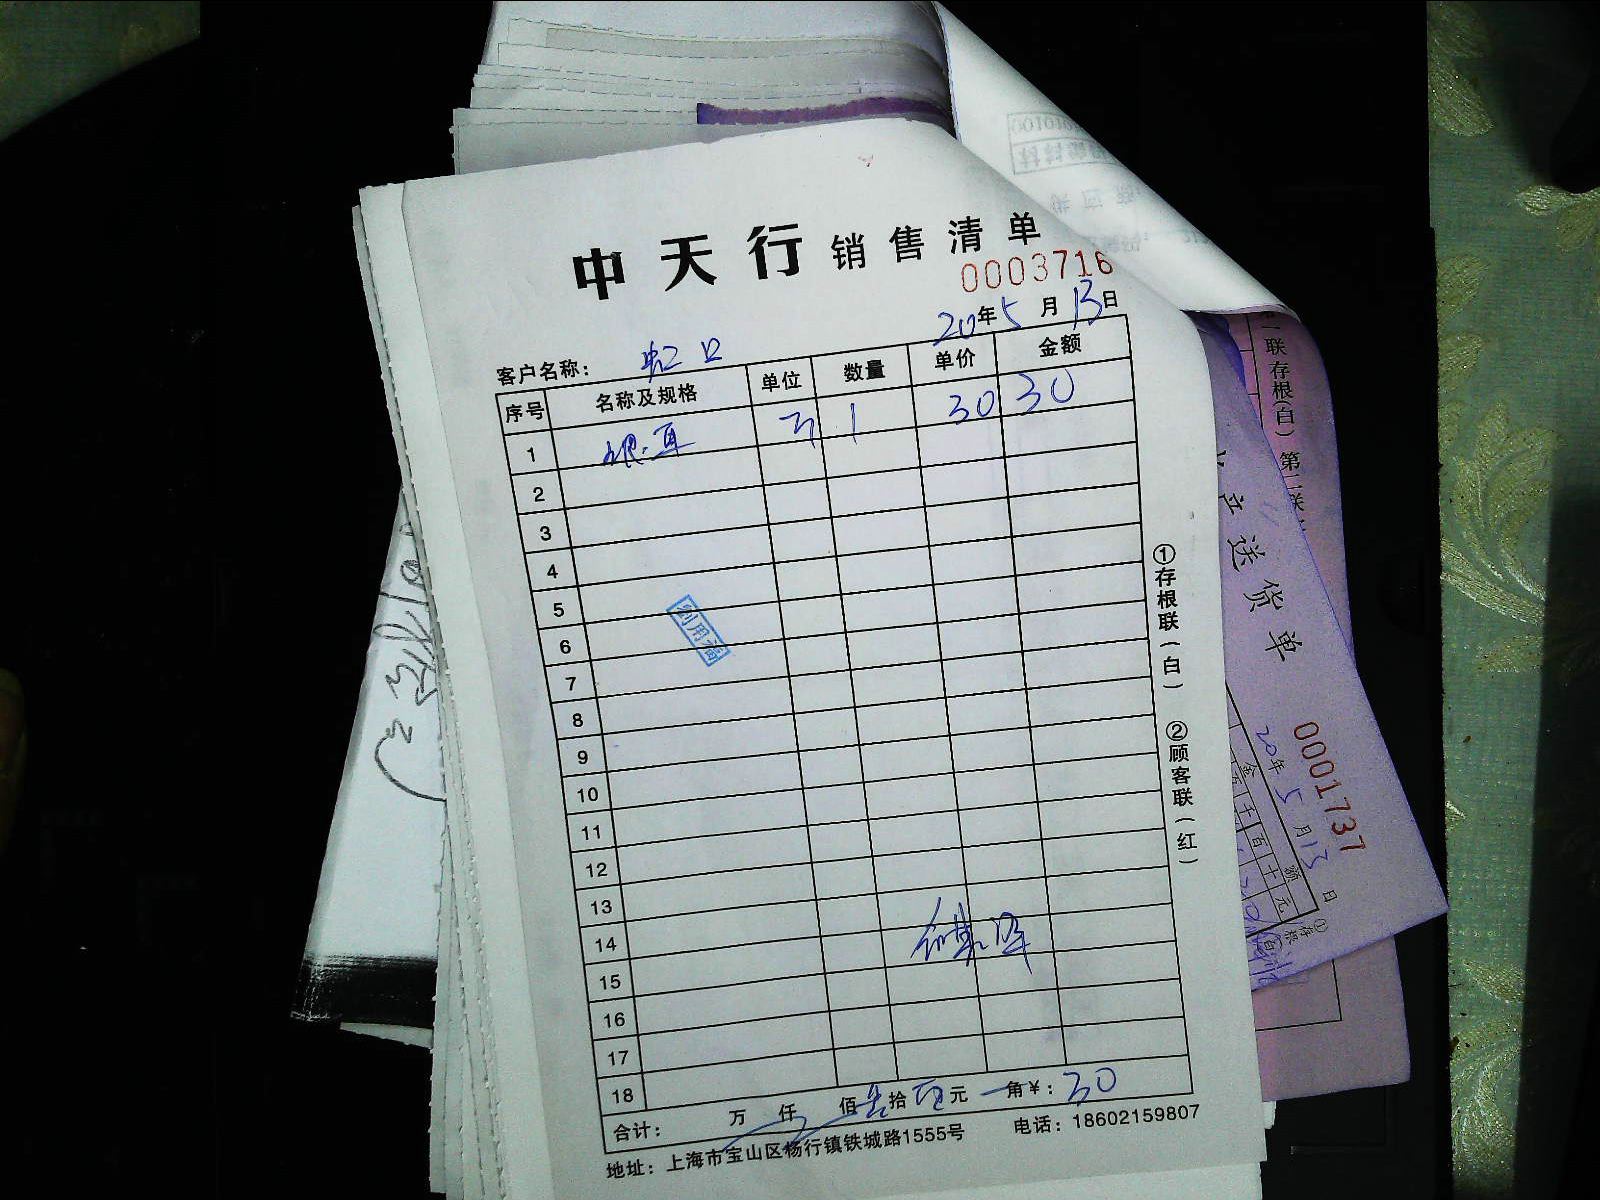 中天行销售清单
0003716
20年5月13日
客户名称： 虹口
序号 名称及规格 单位 数量 单价 金额
1 银耳 斤 1 30 30
2
3
4
5
6
7
8
9
10
11
12
13
14
15
16
17
18
合计： 万 仟 佰 叁拾 元 角￥：30
地址：上海市宝山区杨行镇铁城路1555号 电话：18602159807
①存根联（白） ②顾客联（红）
联存根(白) 第二联
送货单
0001737
20年5月13日
金额
千百十元